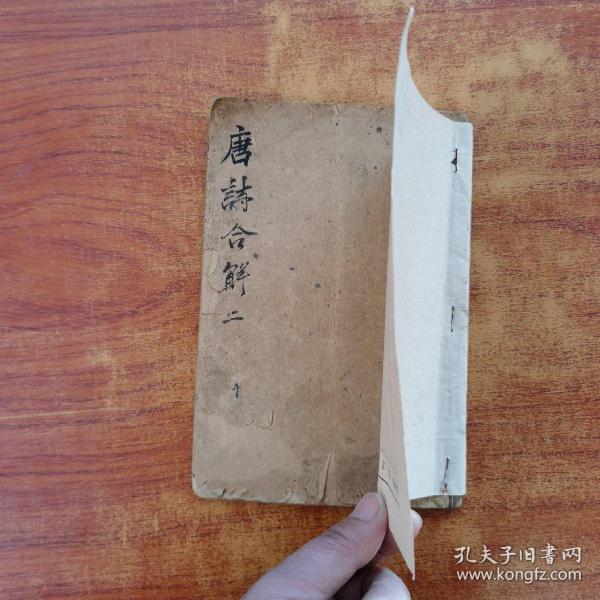 唐詩合解二
孔夫子旧書网
www.kongfz.com